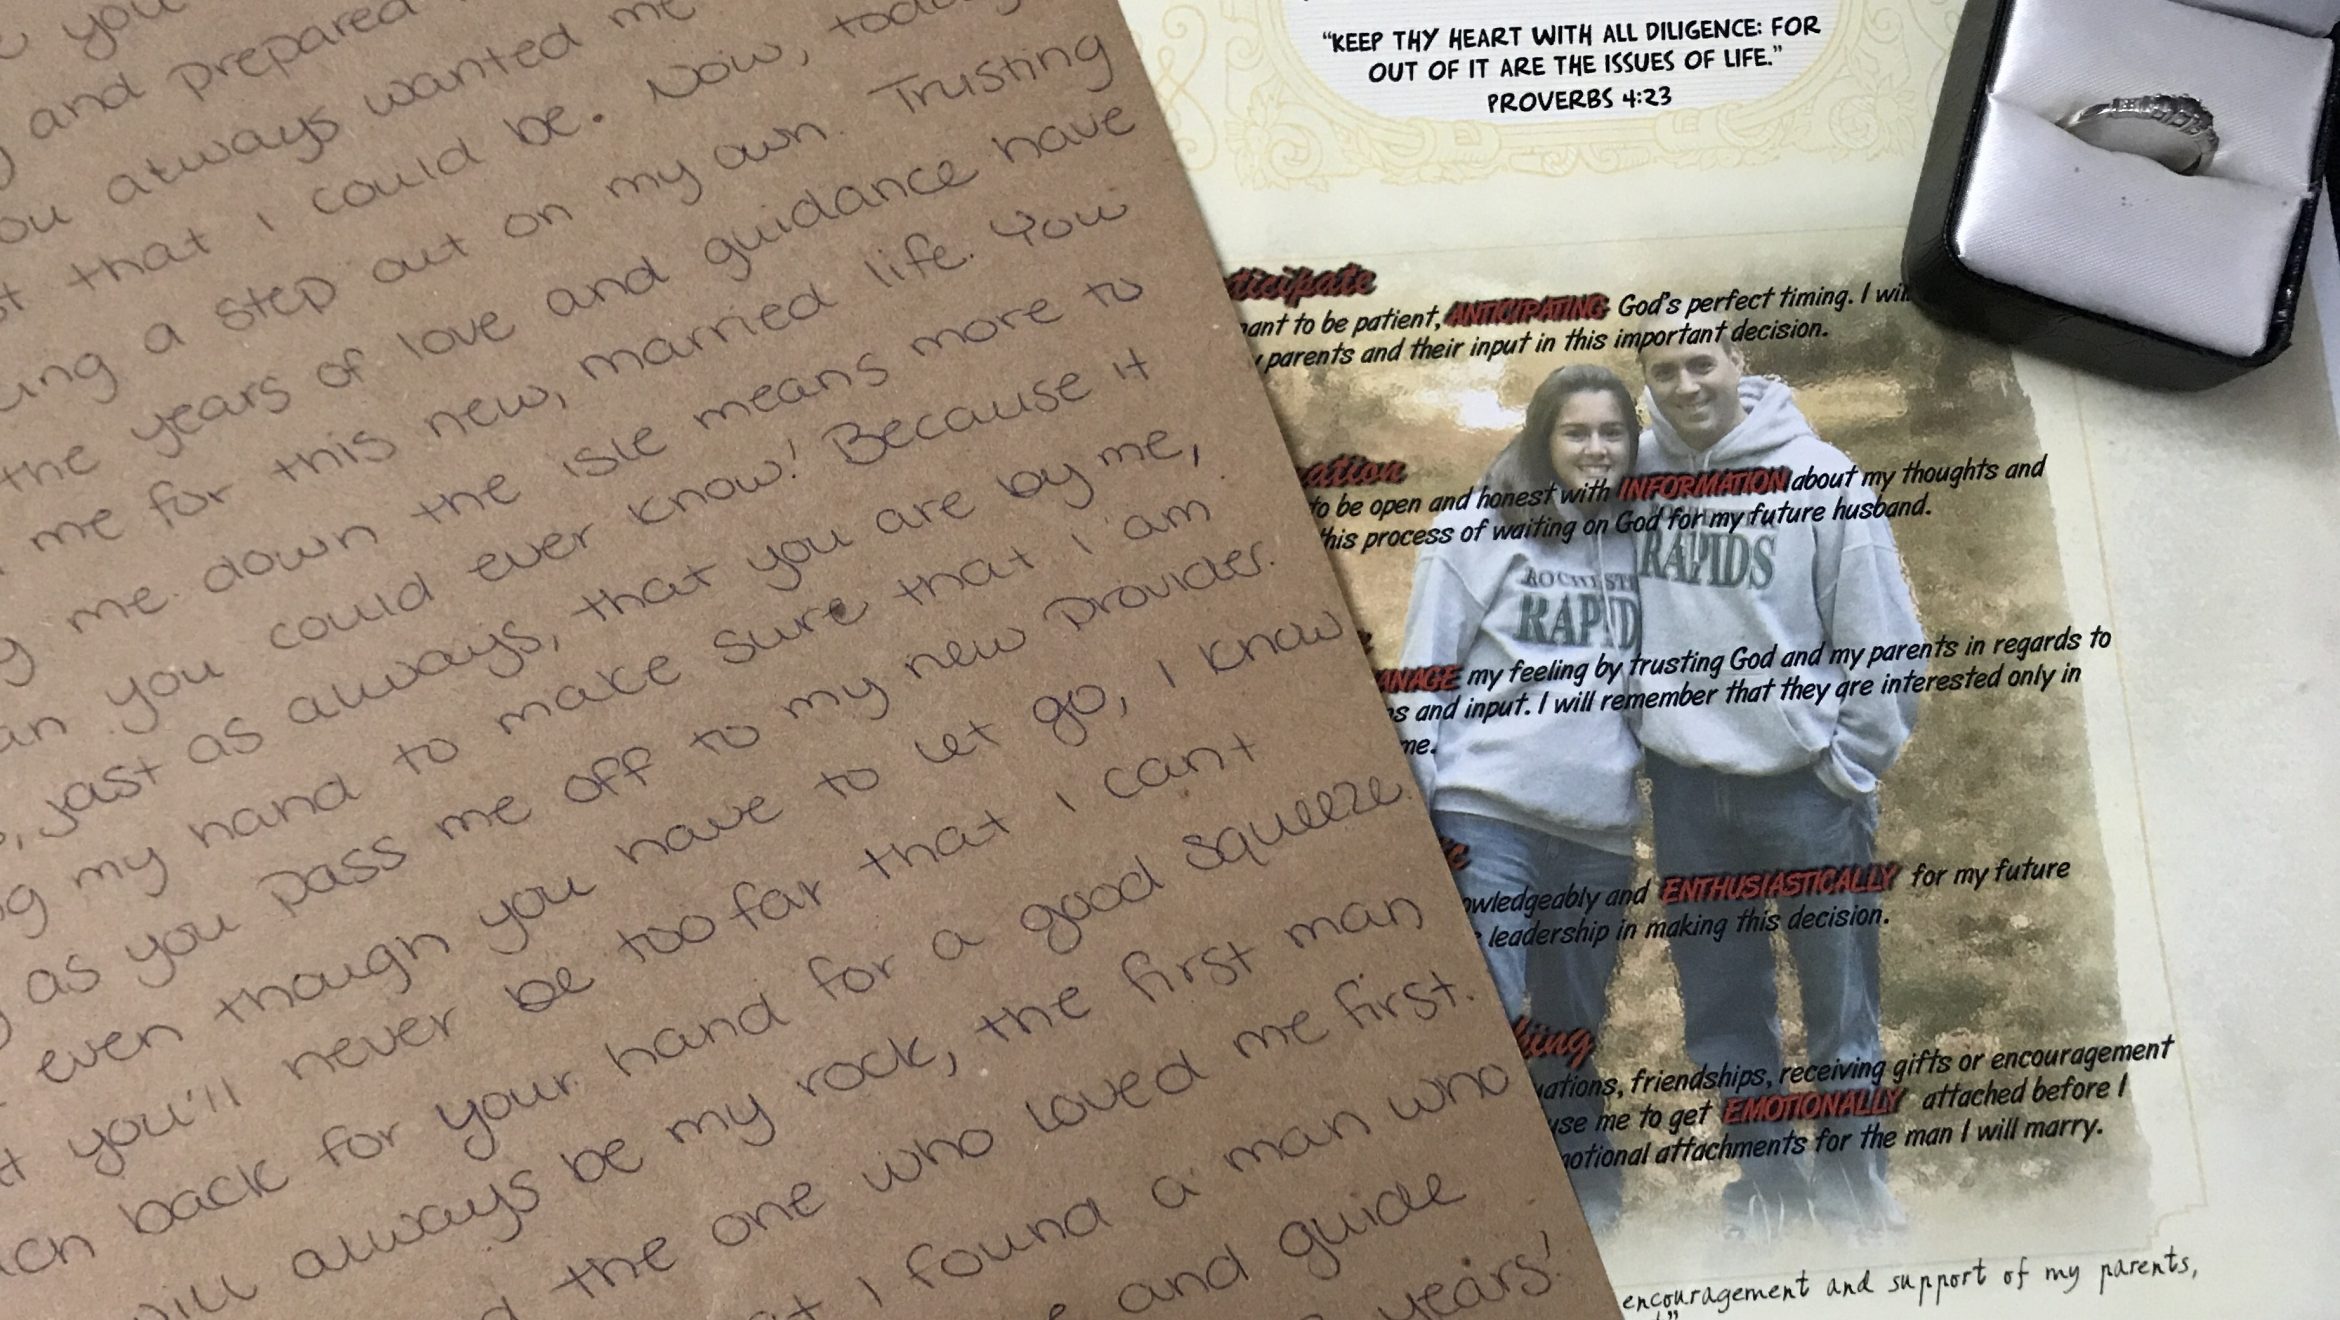 you
and prepared
you always wanted me
that I could be. Now, today
a step out on my own. Trusting
the years of love and guidance have
me for this new, married life. You
me down the isle means more to
you could ever know! Because it
, just as always, that you are by me,
my hand to make sure that I am
as you pass me off to my new provider.
even though you have to let go, I know
you'll never be too far that I can't
back for your hand for a good squeeze.
always be my rock, the first man
the one who loved me first.
I found a man who
and guide
years!
"KEEP THY HEART WITH ALL DILIGENCE: FOR
OUT OF IT ARE THE ISSUES OF LIFE."
PROVERBS 4:23
to be patient, ANTICIPATING God's perfect timing. I will
parents and their input in this important decision.
to be open and honest with INFORMATION about my thoughts and
this process of waiting on God for my future husband.
RAPIDS
my feeling by trusting God and my parents in regards to
and input. I will remember that they are interested only in
me.
and ENTHUSIASTICALLY for my future
leadership in making this decision.
friendships, receiving gifts or encouragement
me to get EMOTIONALLY attached before I
attachments for the man I will marry.
encouragement and support of my parents,